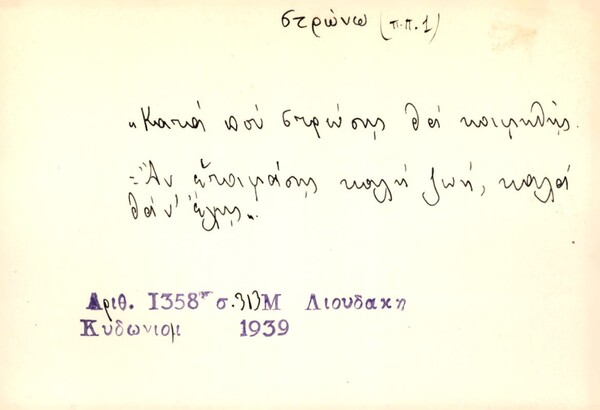 στρώνω (π.π.1)
"Κατά πού στρώσης θά κοιμηθής.
=Ἄν ἑτοιμάσης καλή ζωή, καλά
θά ν' ἔχῃς".
Αριθ. 1358 σ.313 Μ Λιουδακη
Κυδωνιαμ 1939